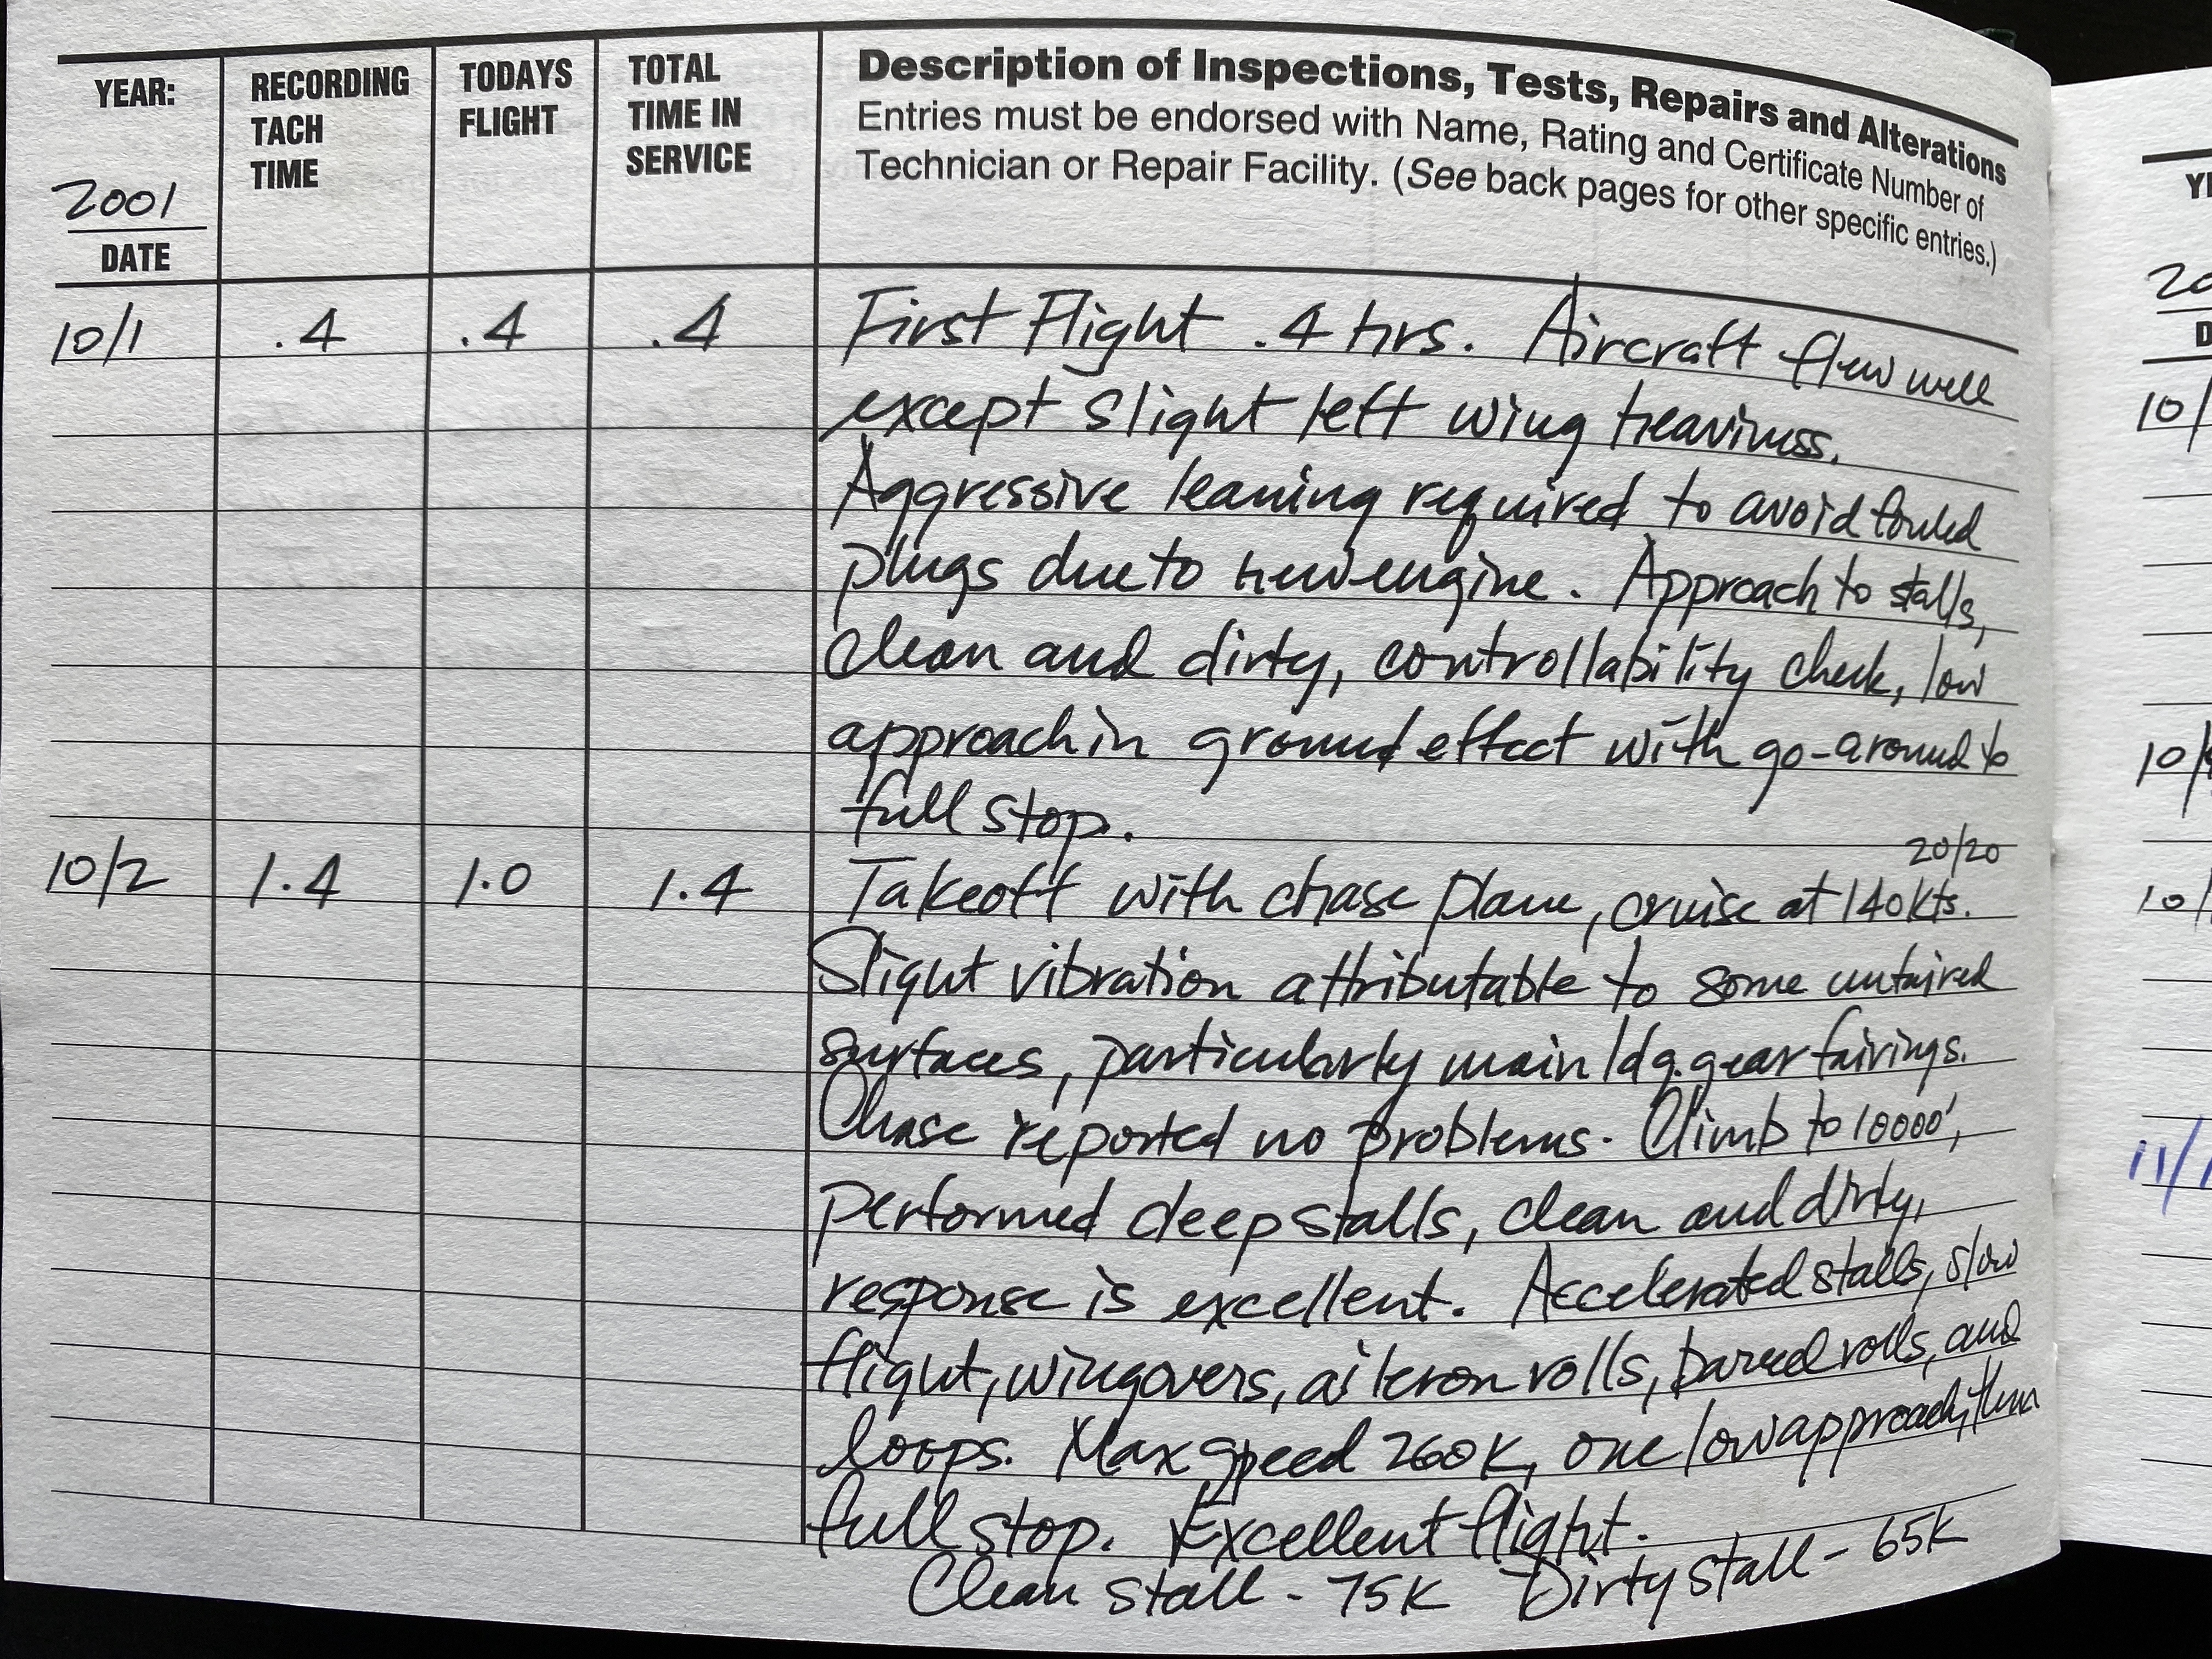 YEAR: RECORDING TODAYS TOTAL Description of Inspections, Tests, Repairs and Alterations
TACH FLIGHT TIME IN Entries must be endorsed with Name, Rating and Certificate Number of
TIME SERVICE Technician or Repair Facility. (See back pages for other specific entries.)
2001
DATE
10/1 .4 .4 .4 First Flight .4 hrs. Aircraft flew well
except slight left wing heaviness.
Aggressive leaning required to avoid fouled
plugs due to new engine. Approach to stalls,
clean and dirty, controllability check, low
approach in ground effect with go-around to
full stop.
20/20
10/2 1.4 1.0 1.4 Takeoff with chase plane, cruise at 140 kts.
Slight vibration attributable to some unfaired
surfaces, particularly main ldg. gear fairings.
Chase reported no problems. Climb to 10000',
performed deep stalls, clean and dirty,
response is excellent. Accelerated stalls, slow
flight, wingovers, aileron rolls, barrel rolls, and
loops. Max speed 260K, one low approach, then
full stop. Excellent flight.
Clean stall - 75K Dirty stall - 65K
10/
10/
11/